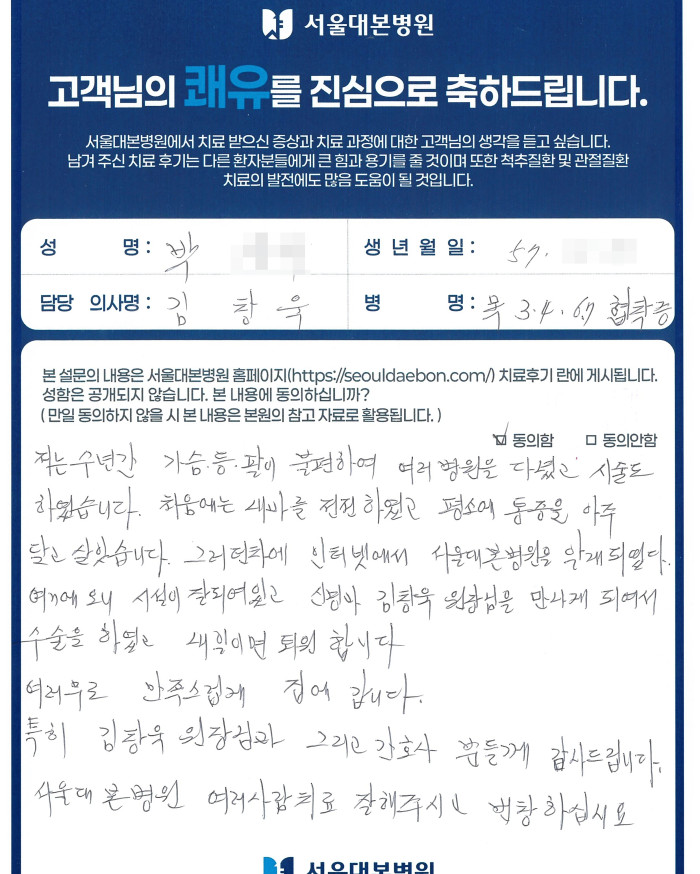 서울대본병원
고객님의 쾌유를 진심으로 축하드립니다.
서울대본병원에서 치료 받으신 증상과 치료 과정에 대한 고객님의 생각을 듣고 싶습니다.
남겨 주신 치료 후기는 다른 환자분들에게 큰 힘과 용기를 줄 것이며 또한 척추질환 및 관절질환
치료의 발전에도 많음 도움이 될 것입니다.
성 명: 박 생년월일: 57.
담당 의사명: 김창욱 병 명: 목 3.4. 6.7 협착증
본 설문의 내용은 서울대본병원 홈페이지(https://seouldaebon.com/) 치료후기 란에 게시됩니다.
성함은 공개되지 않습니다. 본 내용에 동의하십니까?
( 만일 동의하지 않을 시 본 내용은 본원의 참고 자료로 활용됩니다. )
☑ 동의함 □ 동의안함
저는 수년간 가슴.등.팔이 불편하여 여러 병원을 다녔고 시술도
하였습니다. 처음에는 네바를 전전 하였고 평소에 통증을 아주
달고 살았습니다. 그러던차에 인터넷에서 서울대본병원을 알게되었다.
여기에 오니 시설이 잘되여있고 김창욱 원장님을 만나게 되여서
수술을 하였고 내일이면 퇴원 합니다
여러무로 만족스럽게 집에 갑니다.
특히 김창욱 원장님과 그리고 간호사 분들께 감사드립니다.
서울대본병원 여러사람치료 잘해주시니 번창하십시요
서울대본병원